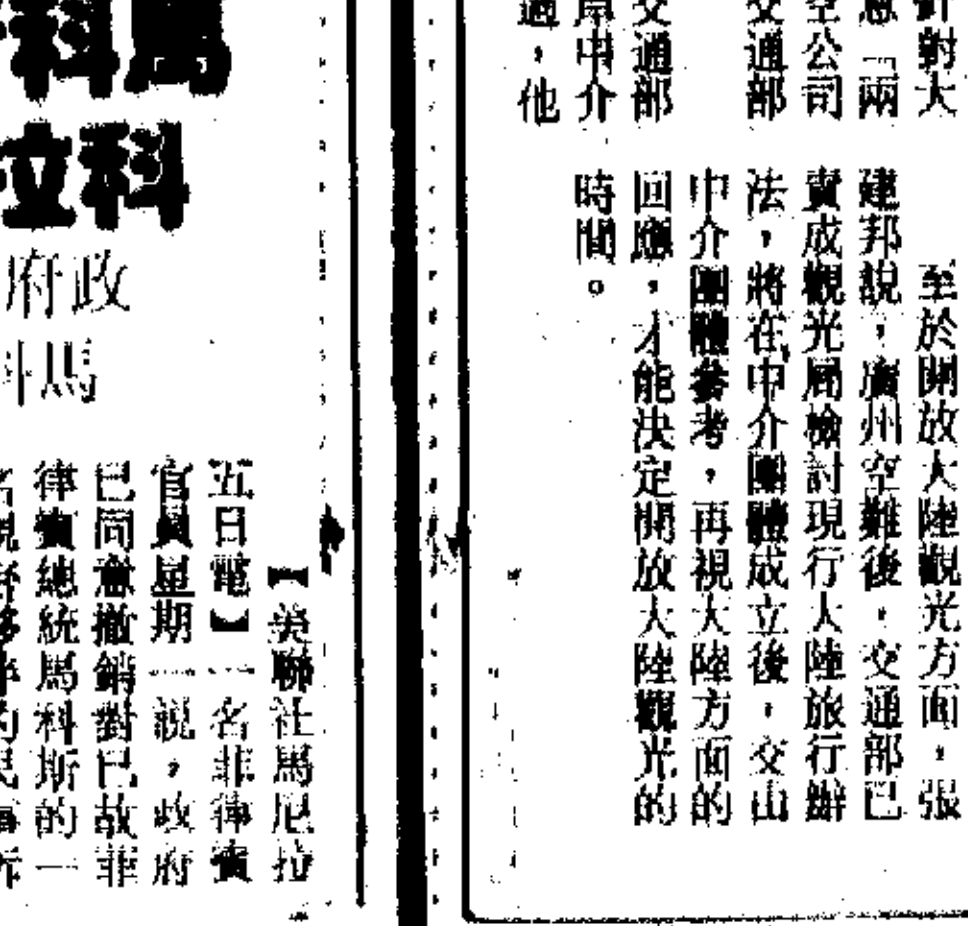 針對大
意「兩
空公司
交通部
交通部
岸中介
適，他
至於開放大陸觀光方面，張
建邦說，廣州空難後，交通部已
責成觀光局檢討現行大陸旅行辦
法，將在中介團體成立後，交由
中介團體參考，再視大陸方面的
回應，才能決定開放大陸觀光的
時間。
馬科
科拉
政府
馬科
【美聯社馬尼拉
五日電】一名菲律賓
官員星期一說，政府
已同意撤銷對已故菲
律賓總統馬科斯的一